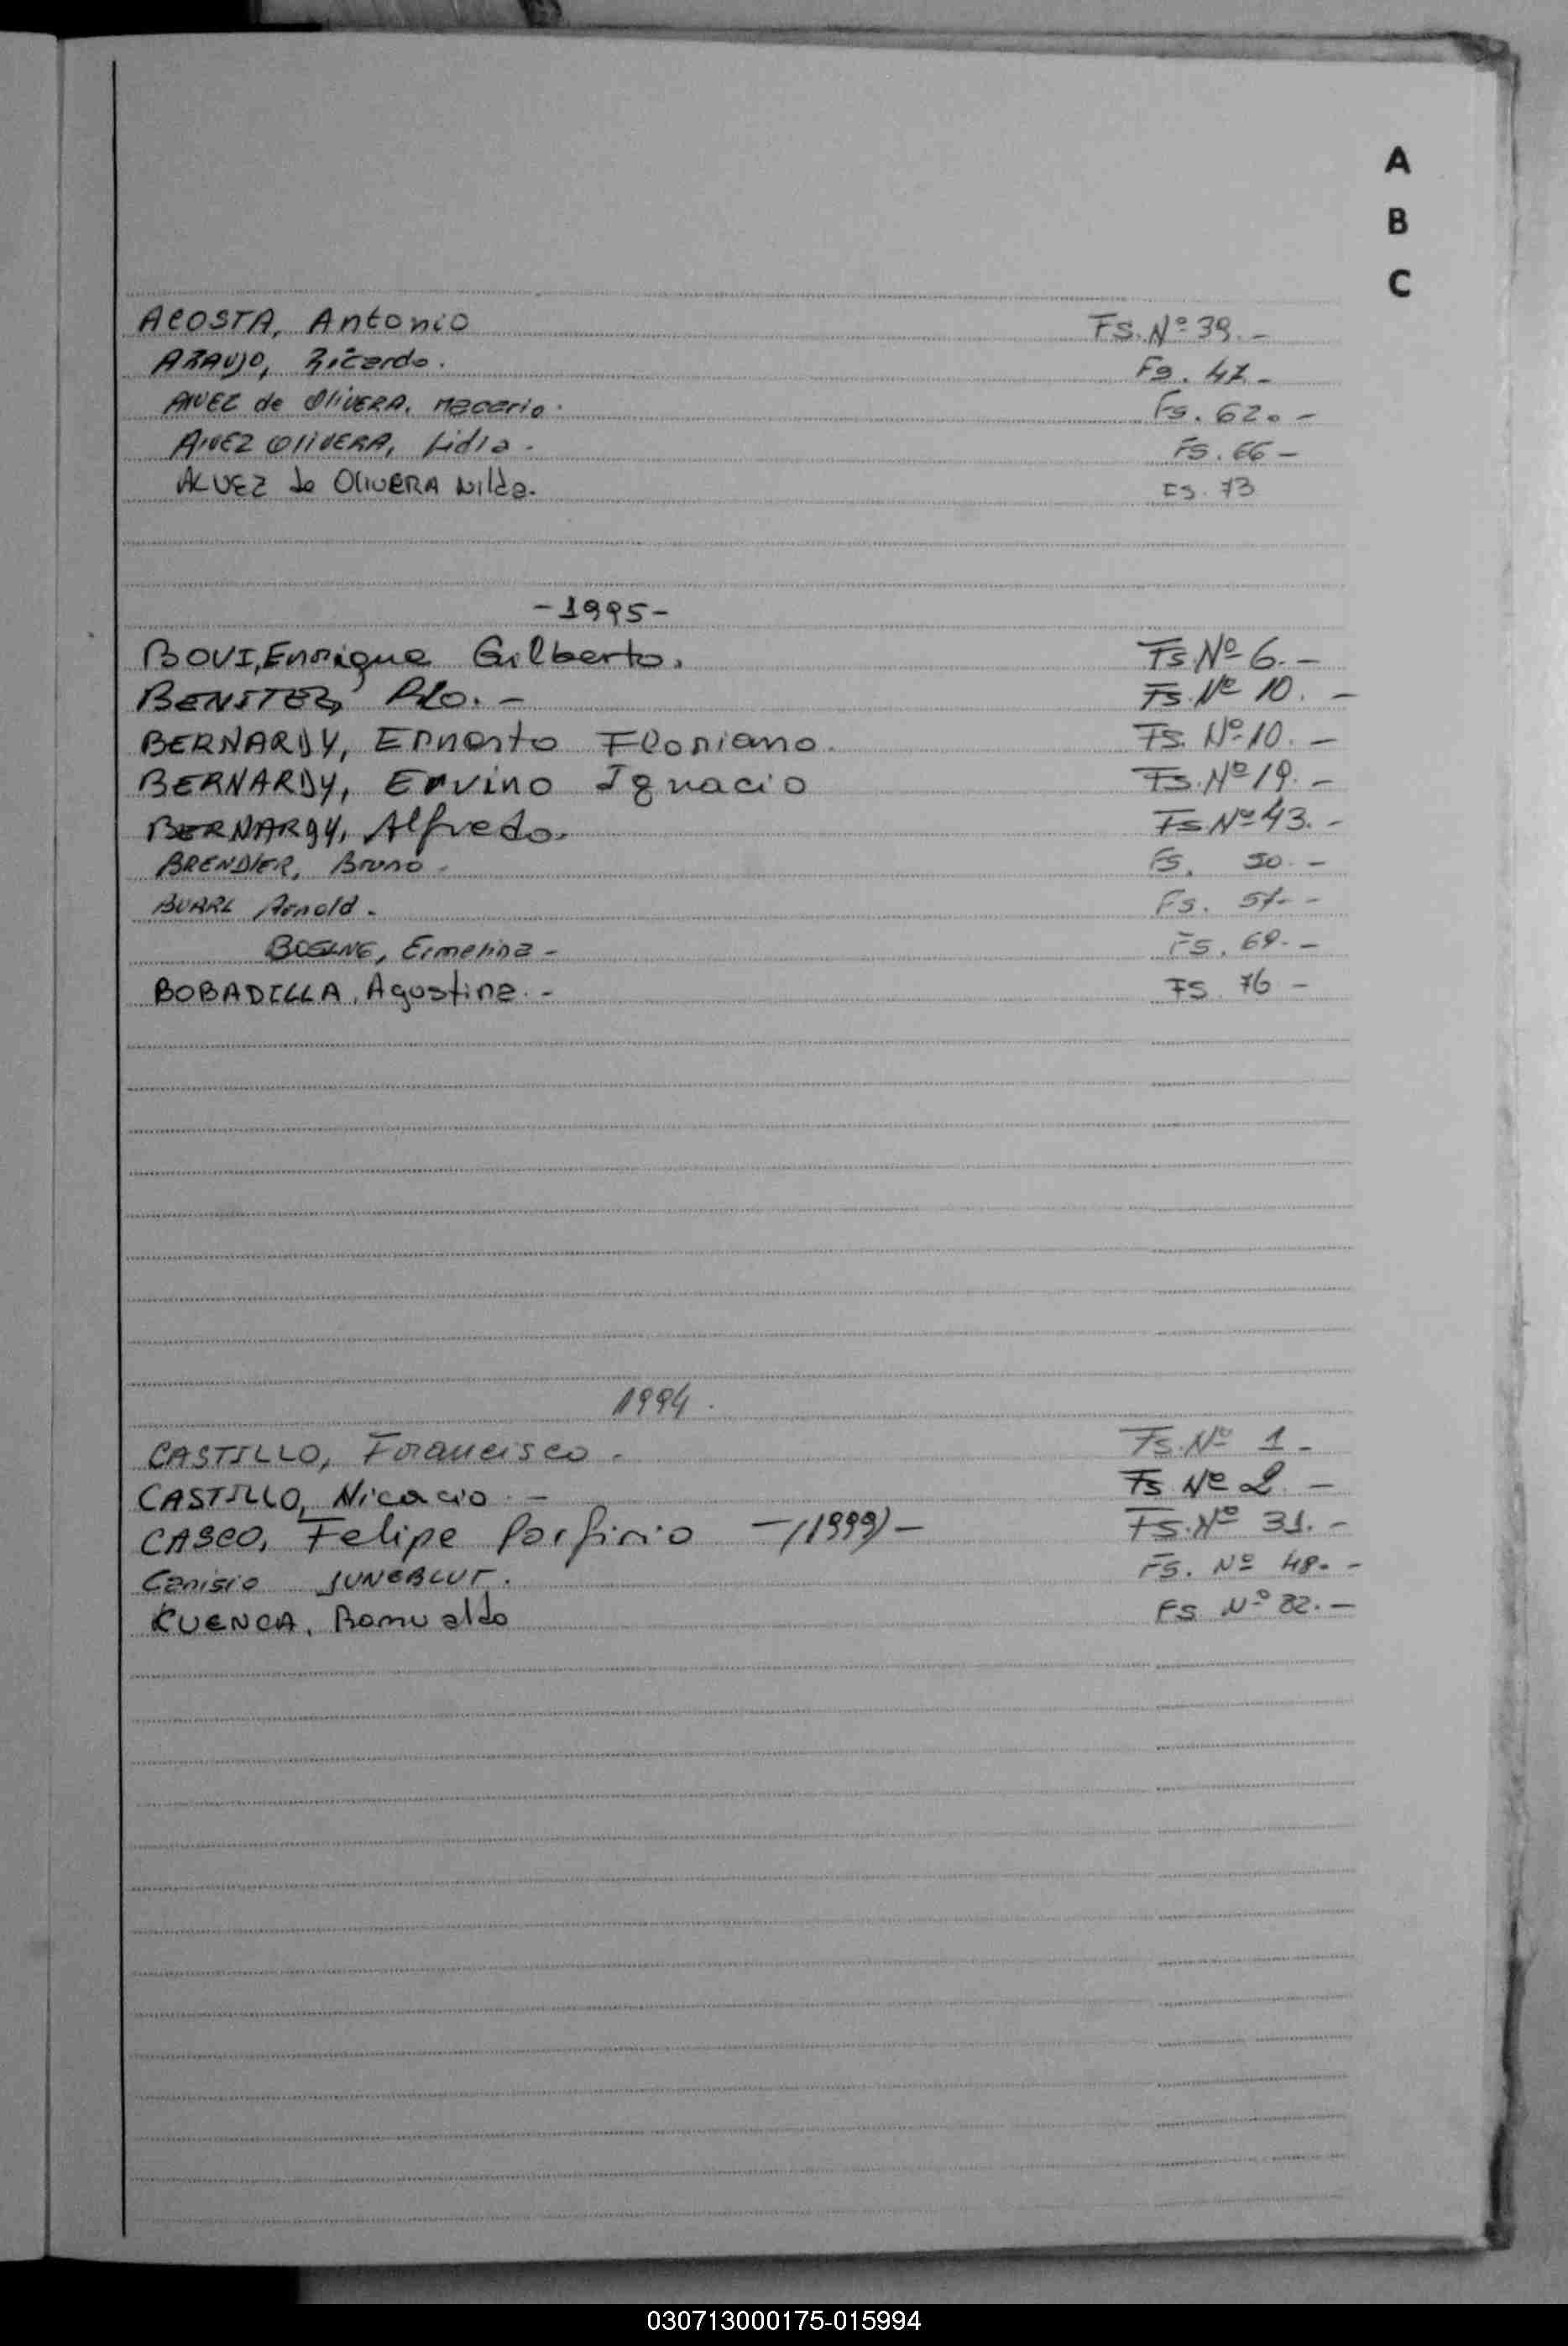 A
B
C
ACOSTA, Antonio Fs. Nº 39.-
ARAUJO, Ricardo. Fs. 47.-
ALVEZ de OlivERA, Macario. Fs. 62.-
AlvEZ OliVERA, Lidia. Fs. 66-
ALVEZ de OliVERA Nilda. Fs. 73
-1995-
BOVI, Enrique Gilberto. Fs. Nº 6.-
BENITEZ, Fs. Nº 10.-
BERNARDY, Ernesto Floriano. Fs. Nº 10.-
BERNARDY, Ervino Ignacio Fs. Nº 19.-
BERNARDY, Alfredo. Fs Nº 43.-
BRENDLER, Bruno. Fs. 50.-
Arnold. Fs. 57.-
Ermelina- Fs. 69.-
BOBADILLA, Agustina.- Fs. 76-
1994.
CASTILLO, Francisco. Fs. Nº 1.-
CASTILLO, Nicacio.- Fs Nº 2.-
CASCO, Felipe Porfirio -(1999)- Fs. Nº 31.-
Canisio JUNGBLUT. Fs. Nº 48.-
KUENCA, Romualdo Fs Nº 82.-
030713000175-015994